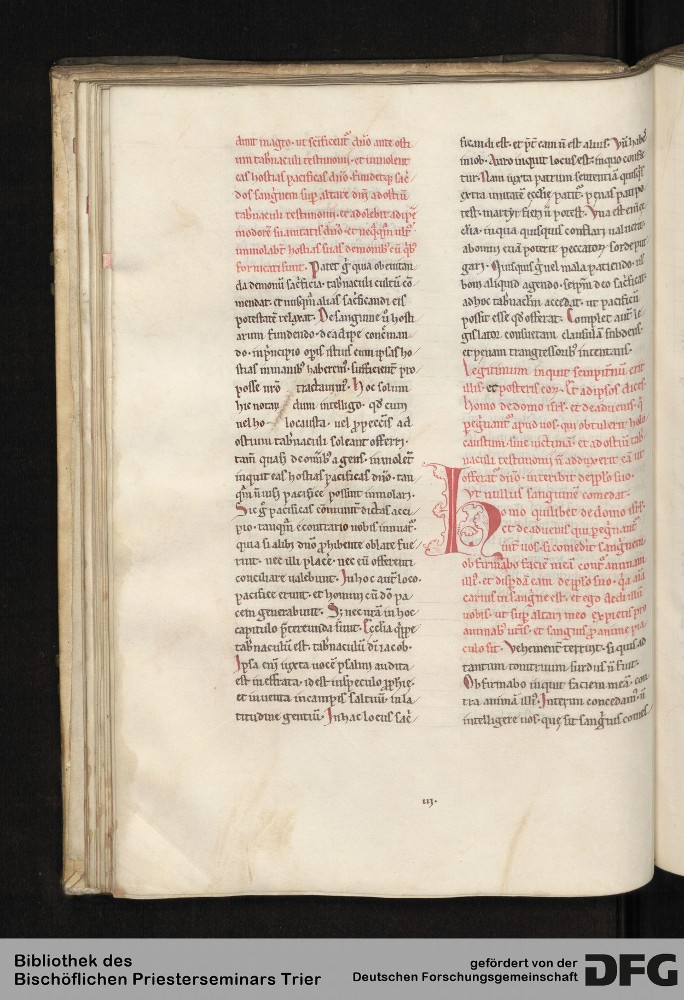 dunt in agro· ut scificent᷑ dño ante osti
um tab̃naculi testimonii· et immolent
eas hostias pacificas dño· fundetq; sac̃
dos sanguinem sup̃ altare dñi ad ostiũ
tab̃naculi testimonii· et adolebit adipẽ
in odorẽ suauitatis dño· et neq̃q̃m ult᷑
immolab̃t hostias suas demonib; cũ q̃b;
fornicati sunt· Patet g̃ quia ob euitan
da demonũ sac̃ficia· tab̃naculi cultũ cõ
mendat· et nusq̃m alias sac̃ficandi eis
potestatẽ relaxat· De sanguine ũ hosti
arum fundendo· de adipe concreman
do· in p̃ncipio opis istius cum ipsas ho
stias in manib; haberem;· sufficient̃ pro
posse nr̃o tractauim;· Hoc solum
hic notan dum intelligo· qđ cum
uel ho locausta· uel p̃ pecc̃is ad
ostium tab̃naculi soleant offerri·
tam̃ quasi de omib; agens· immolet
inquit eas hostias pacificas dño· tan
q̃m ñ nisi pacifice possint immolari·
Sic g̃ pacificas cõmunit̃ dictas acci
pio· tanq̃m e contrario nobis innuat᷑·
quia si alibi dño p̃hibente oblate fue
rint· nec illi placẽt· nec eũ offerenti
conciliare ualebunt· In hoc aut̃ loco·
pacifice erunt· et homini cũ dõ pa
cem generabunt· S; nec ura in hoc
capitulo p̃tereunda sunt· Ecclia q̃ppe
tab̃naculũ est· tab̃naculũ dı̃ iacob·
Ipsa enĩ iuxta uocẽ psalmi audita
est in effrata· id est in speculo p̃phie·
et inuenta in campis saltuũ· in la
titudine gentiũ· In hac locus sac̃
ficandi est· et p̃t eam ñ est alius· Vñ habes
in iob· Auro inquit locus est· in quo confla
tur· Nam iuxta patrum sententiã quisq;s
extra unitatẽ ecclie patit᷑· penas pati po
test· martyr fieri ñ potest· Vna est enĩ ec
clia· in qua quisquis conflari ualuerit·
ab omni etiã poterit peccatoꝝ sorde pur
gari· Quisquis g̃ uel mala patiendo· uel
bona aliquid agendo· seipm̃ deo sac̃ficat·
ad hoc tab̃naclm̃ accedat· ut pacificũ
possit esse qđ offerat· Complet aut̃ le
gislator consuetam clausulã subdens·
et penam transgressorib; intentans·
Legitimum inquit sempitnũ erit
illis· et posteris eoꝝ· Et ad ipsos dices·
Homo de domo isrl̃· et de aduenis· q̃
pegrinant̃ apud uos· qui obtulerit holo
caustum· siue uictimã· et ad ostiũ tab̃
naculi testimonii ñ adduxerit eã ut
offerat᷑ dño· interibit de pp̃lo suo·
Vt nullus sanguinẽ comedat·
Homo quilibet de domo isrl̃·
et de aduenis qui pegrinant̃
int̃ uos· si comedit sanguinem
obfirmabo faciẽ meã cont᷑ animam
illĩ· et disp̃dã eam de pp̃lo suo· q̃a aĩa
carnis in sang̃ne est· et ego dedi illũ
uobis· ut sup̃ altari meo expietis pro
animab; uris· et sanguis p̃ anime pia
culo sit· Vehement̃ terruit· si quis ad
tantum tonitruum surdus ñ fuit·
Obfirmabo inquit faciem meã· con
tra animã illĩ· Interim concedam;· ñ
intelligere uos· quę sit sang̃nis comes
113·
Bibliothek des
Bischöflichen Priesterseminars Trier
gefördert von der
Deutschen Forschungsgemeinschaft
DFG